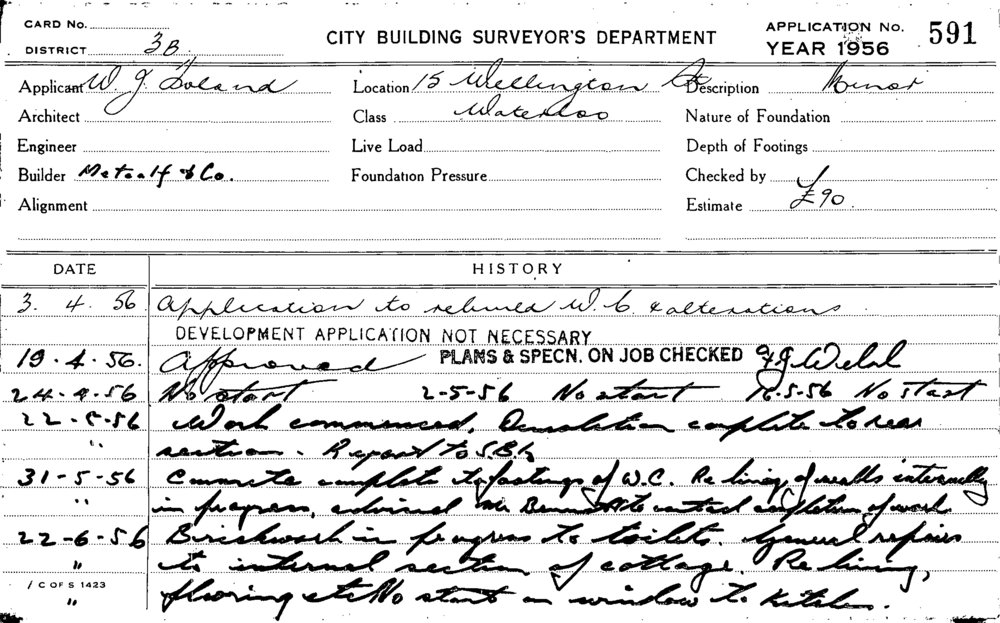 CARD No.
DISTRICT 3B
CITY BUILDING SURVEYOR'S DEPARTMENT
APPLICATION No. 591
YEAR 1956
Applicant W. J. Boland Location 15 Wellington St Description Minor
Architect Class Waterloo Nature of Foundation
Engineer Live Load Depth of Footings
Builder Metcalf & Co. Foundation Pressure Checked by
Alignment Estimate £90
DATE HISTORY
3. 4. 56 Application to rebuild W.C. & alterations
DEVELOPMENT APPLICATION NOT NECESSARY
19.4.56. Approved PLANS & SPECN. ON JOB CHECKED
24-4-56 No start 2-5-56 No start 16-5-56 No start
22-5-56 Work commenced, Demolition complete to rear
" section. Report to
31-5-56 Concrete complete to footings of W.C. Re lining of walls internally
" in progress, advised Mr to contact completion of work
22-6-56 Brickwork in progress to toilets. General repairs
" to internal section of cottage. Re lining,
C OF S 1423
" flooring etc No start on window to Kitchen.